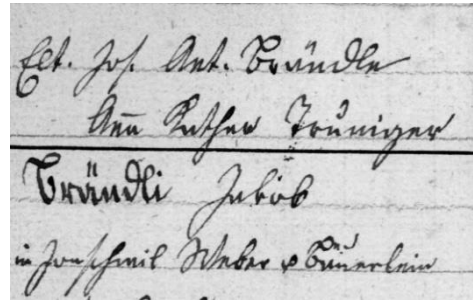 Elt. Jos. Ant. Brändle
Ann Kather Truniger
Brändli Jakob
in Jonschwil Weber u Bäuerlein